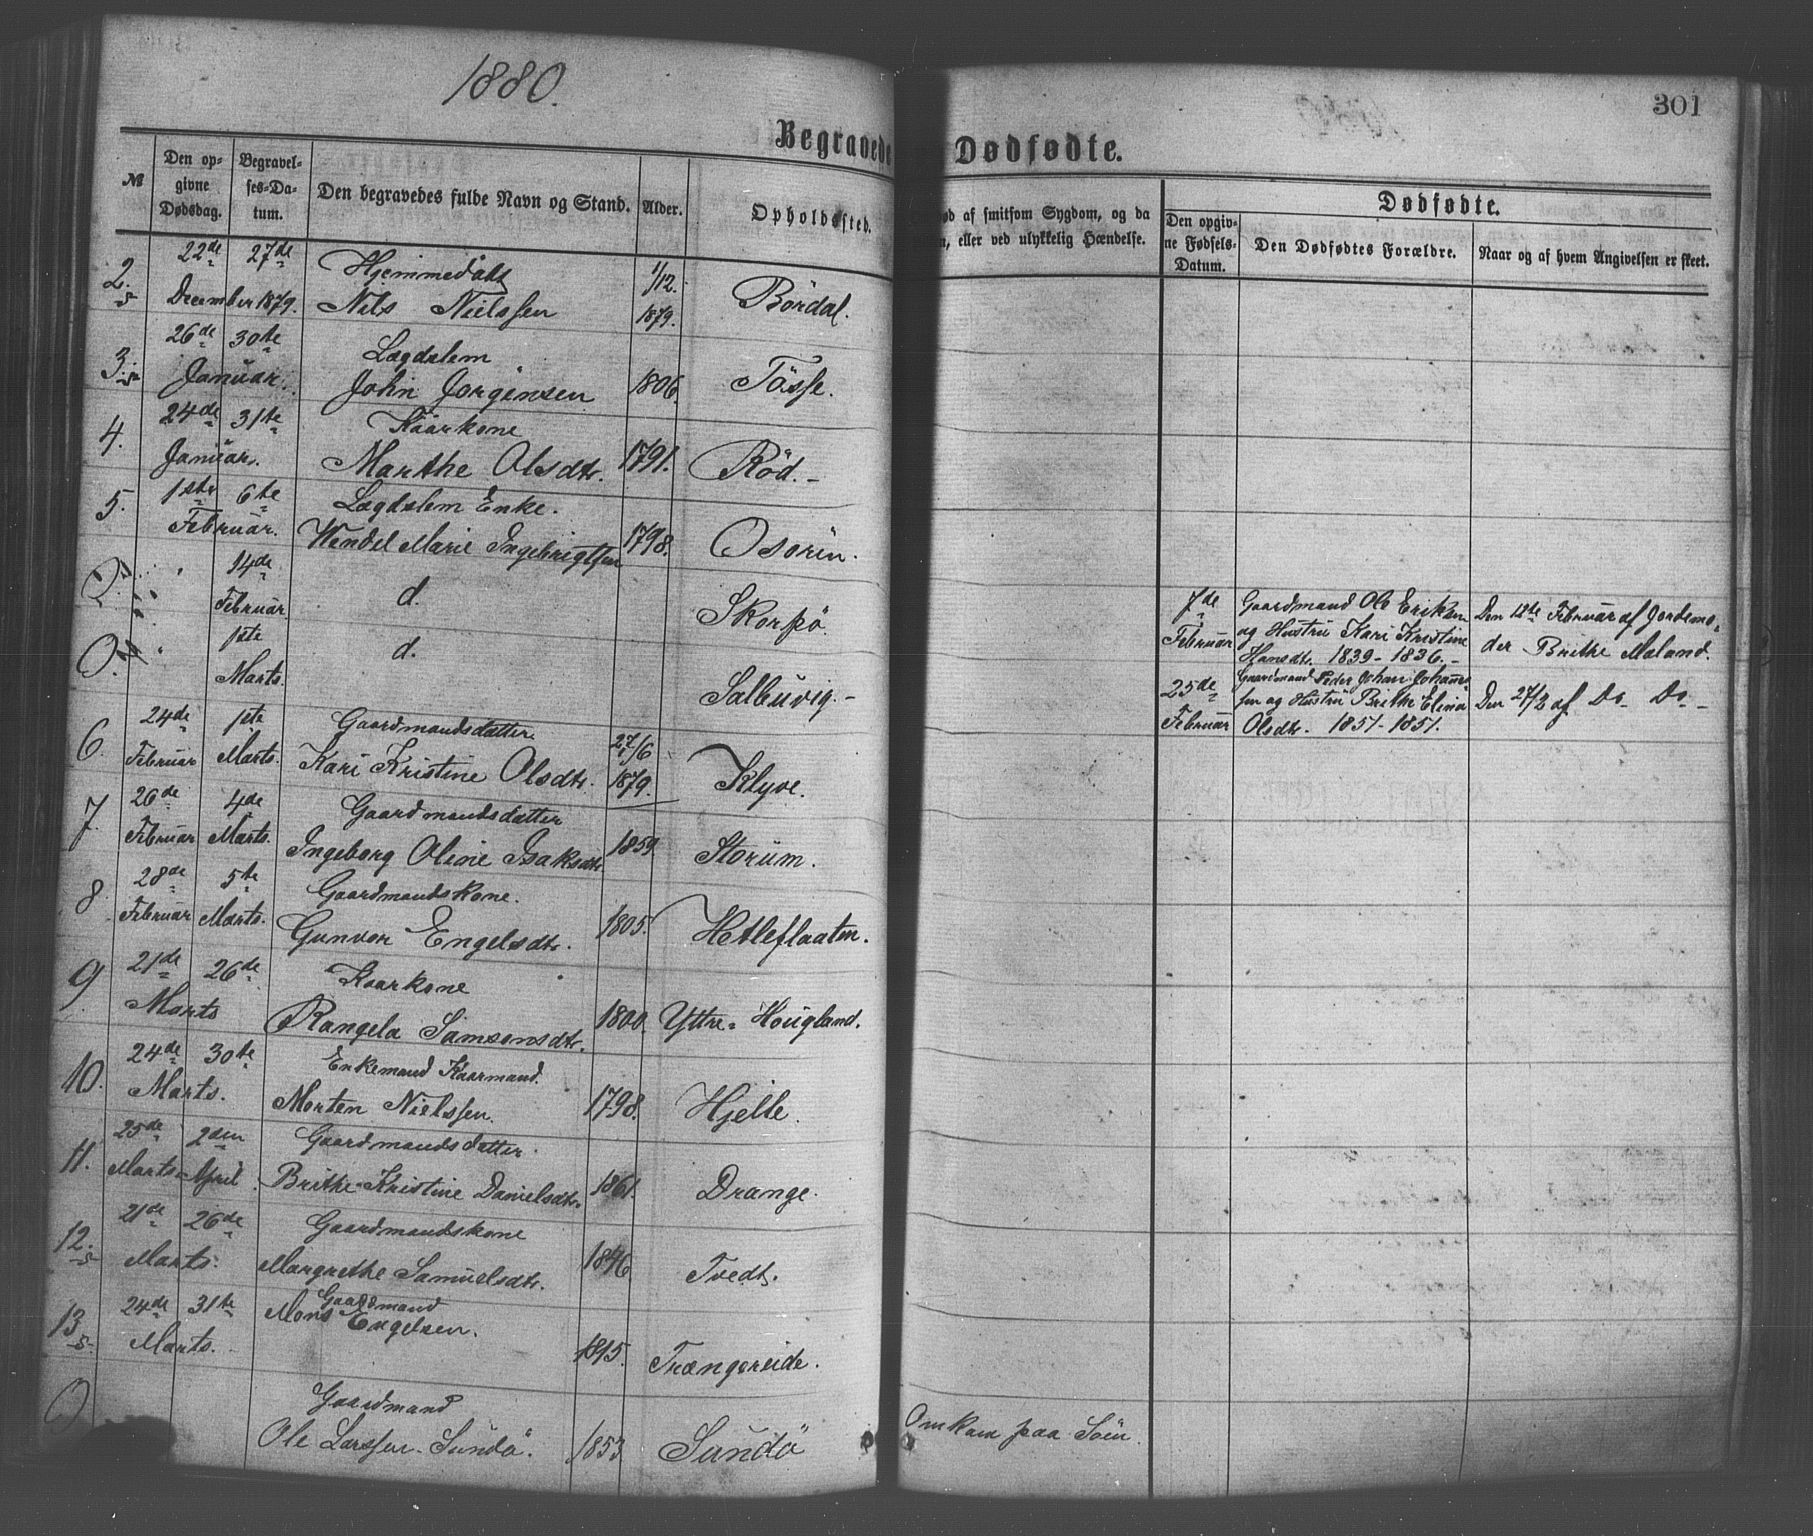 1880.
301
Begravede
Dødfødte.
№
Den op-
givne
Dødsdag.
Begravel-
ses-Da-
tum.
Den begravedes fulde Navn og Stand.
Alder.
Opholdssted.
ød af smitsom Sygdom, og da
n, eller ved ulykkelig Hændelse.
Dødfødte.
Den opgiv-
ne Fødsels-
Datum.
Den Dødfødtes Forældre.
Naar og af hvem Angivelsen er skeet.
2. 22de 27de Hjemmedøbt 1/12.
December 1879. Nils Nielssen 1879. Bördal.
3. 26de 30te Lægdslem
Januar. John Jørgensen 1806. Tösse.
4. 24de 31te Kaarkone
Januar. Marthe Olsdtr. 1791. Röd. -
5. 1ste 6te Lægdslem Enke.
Februar. Wendel Marie Ingebrigtsen 1798. Osören.
14de
Februar. d. Skorpö.
7de
Februar
Gaardmand Ole Eriksen
og Hustru Kari Kristine
Hansdt. 1839 - 1836. -
Den 12te Februar af Jordemo-
der Brithe Møland.
1ste
Marts. d. Salbuvig. -
25de
Februar
Gaardmand Peder Johan Johans-
sen og Hustru Brithe Elina
Olsdtr. 1851 - 1851.
Den 27/2 af Do Do -
6. 24de 1ste Gaardmandsdatter 27/6
Februar Marts. Kari Kristine Olsdtr. 1879. Klyve.
7. 26de 4de Gaardmandsdatter
Februar Marts. Ingeborg Oline Isaksdtr 1859 Storum.
8. 28de 5te Gaardmandskone.
Februar Marts. Gunvor Engelsdtr. 1805. Hetleflaaten.
9. 21de 26de Kaarkone
Marts Rangela Samsonsdtr. 1800. Yttre-Hougland.
10. 24de 30te Enkemand Kaarmand.
Marts. Morten Nielssen. 1798. Hjelle.
11. 25de 2den Gaardmandsdatter.
Marts April. Brithe Kristine Danielsdtr. 1861. Drange.
12. 21de 26de Gaardmandskone
Marts. Margrethe Samuelsdtr. 1846. Tvedt.
13 24de 31te Gaardmand
Marts. Mons Engelsen. 1815. Trængereide.
Gaardmand
Ole Larssen Sundö. 1853 Sundö Omkom paa Söen.